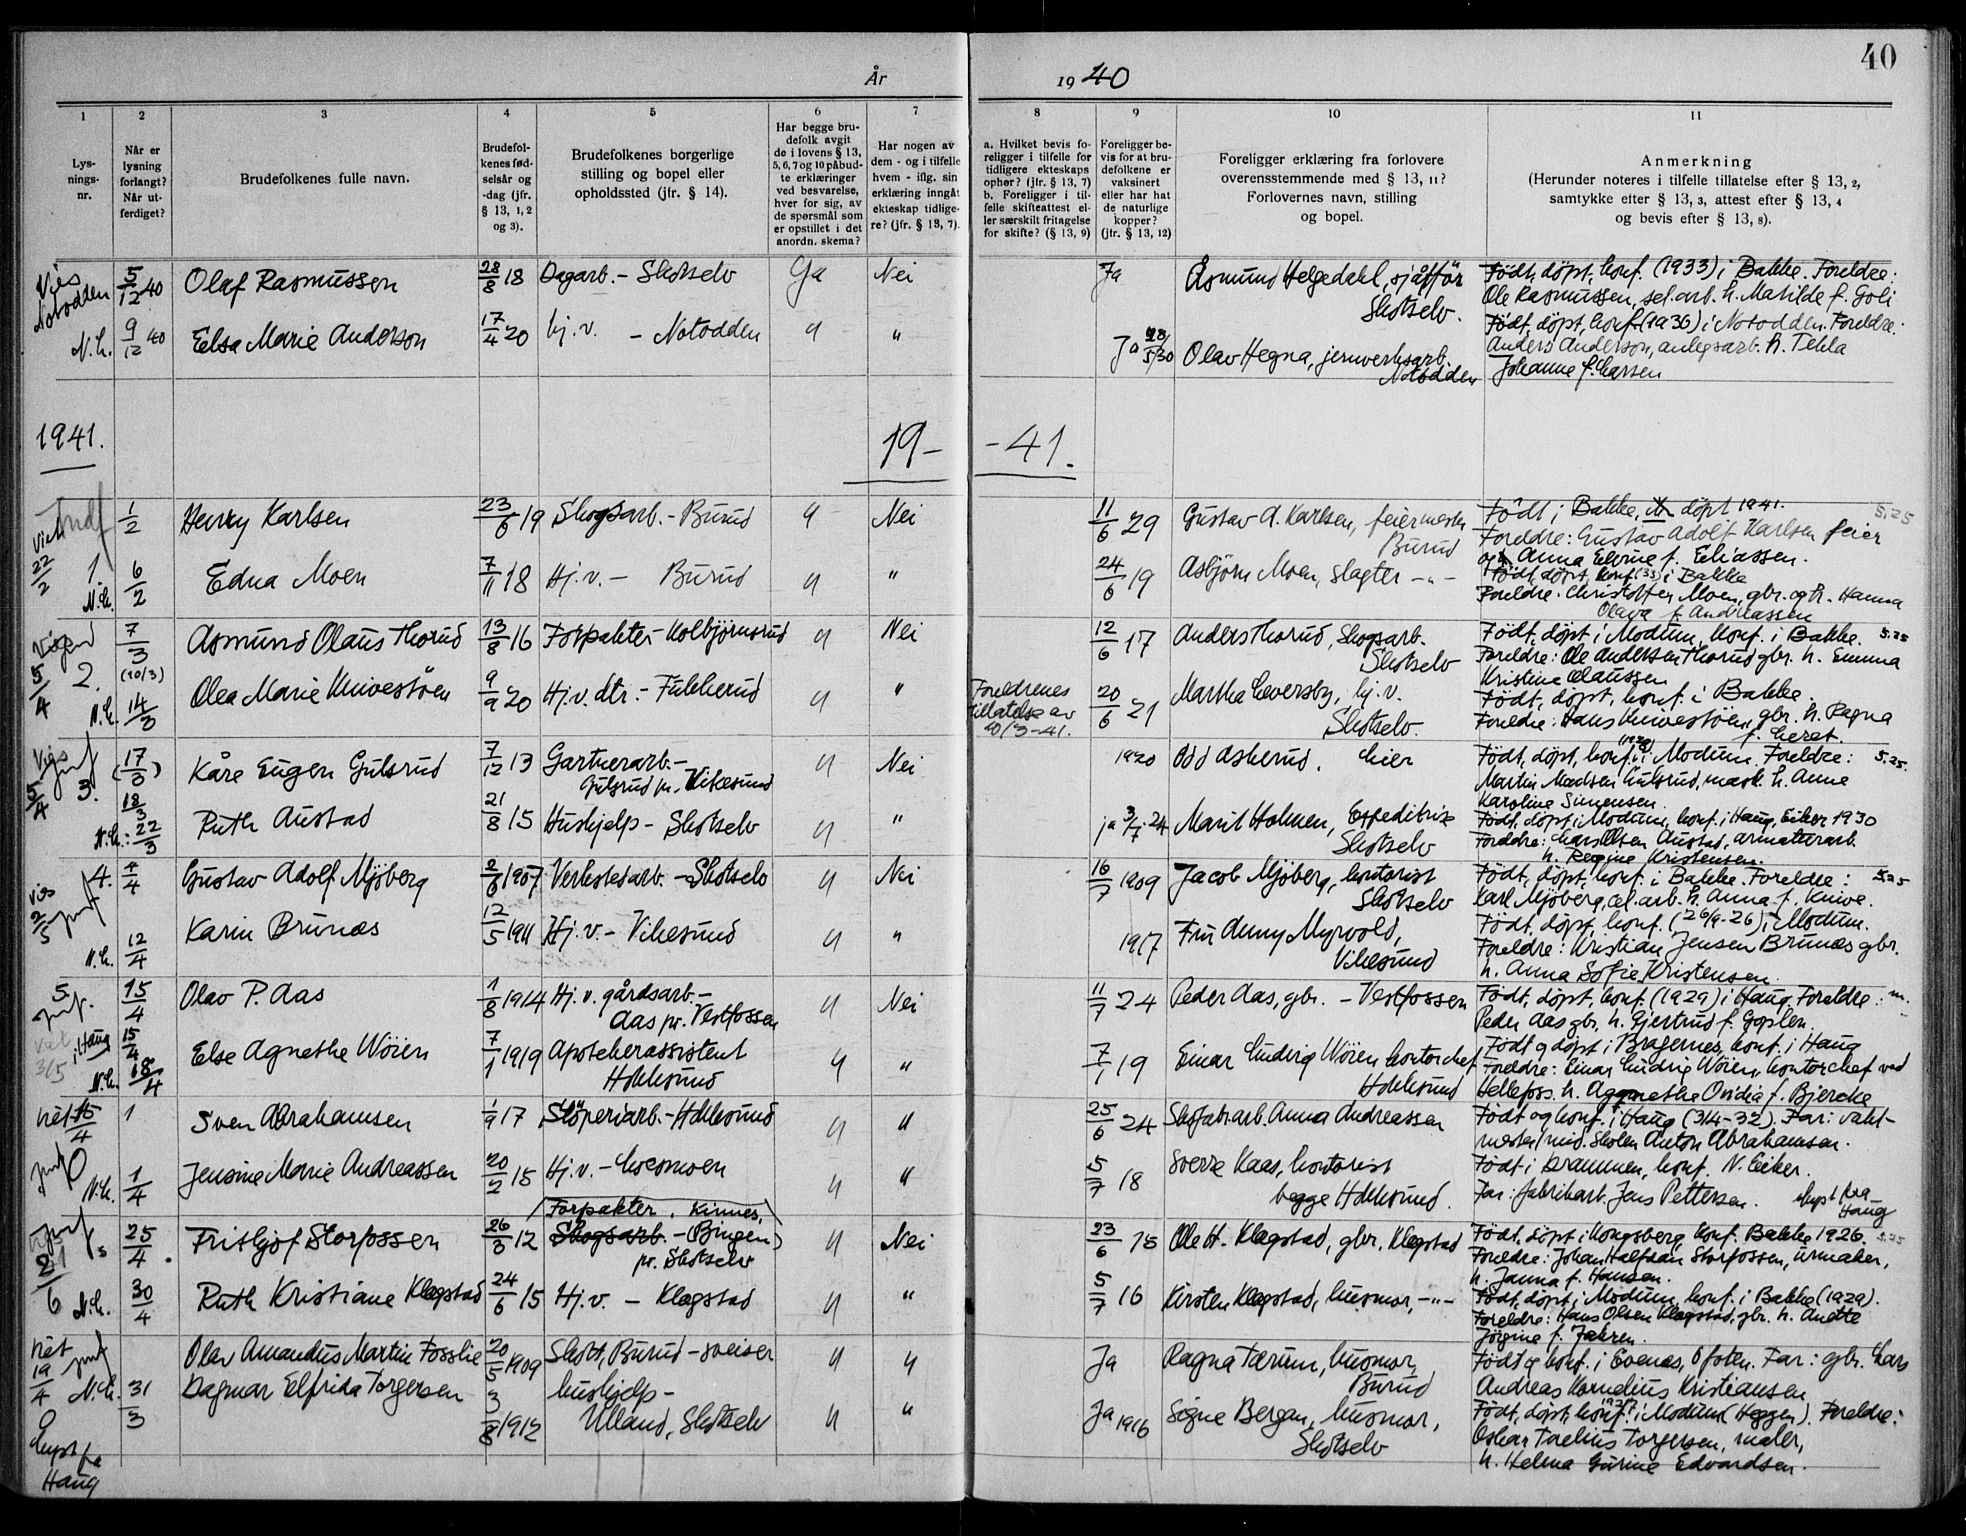 40
År 1940
1
Lys-
nings-
nr.
2
Når er
lysning
forlangt?
Når ut-
ferdiget?
3
Brudefolkenes fulle navn.
4
Brudefol-
kenes fød-
selsår og
-dag (jfr.
§ 13, 1, 2
og 3).
5
Brudefolkenes borgerlige
stilling og bopel eller
opholdssted (jfr. § 14).
6
Har begge bru-
defolk avgit
de i lovens § 13,
5, 6, 7 og 10 påbud-
te erklæringer
ved besvarelse,
hver for sig, av
de spørsmål som
er opstillet i det
anordn. skema?
7
Har nogen av
dem - og i tilfelle
hvem - iflg. sin
erklæring inngått
ekteskap tidlige-
re? (jfr. § 13, 7).
8
a. Hvilket bevis fo-
religger i tilfelle for
tidligere ekteskaps
ophør? (jfr. § 13, 7)
b. Foreligger i til-
felle skifteattest el-
ler særskilt fritagelse
for skifte? (§ 13, 9)
9
Foreligger be-
vis for at bru-
defolkene er
vaksinert
eller har hat
de naturlige
kopper?
(jfr. § 13, 12)
10
Foreligger erklæring fra forlovere
overensstemmende med § 13, 11?
Forlovernes navn, stilling
og bopel.
11
Anmerkning
(Herunder noteres i tilfelle tillatelse efter § 13, 2,
samtykke efter § 13, 3, attest efter § 13, 4
og bevis efter § 13, 8).
Vies Notodden 5/12 40 Olaf Rasmussen 28/8 18 Dagarb. - Skotselv Ja Nei Ja Åsmund Helgedahl, sjåffør
Skotselv.
Født, døpt, konf. (1933) i Bakke. Foreldre:
Ole Rasmussen, h. Matilde f. Goli
N.h. 9/12 40 Elsa Marie Anderson 17/4 20 hj.v. - Notodden " " Ja Olav Hegna, jernverksarb.
Notodden
Født, døpt, konf. (1936) i Notodden. Foreldre:
Anders Anderson, anlegsarb. h. Tekla
Johanne f. Larsen
1941. 19- -41.
22/2 1/2 Henry Karlsen 23/6 19 Skogsarb. - Burud " Nei 11/6 29 Gustav A. Karlsen, feiermester
Burud
Født i Bakke, døpt 1941. 5.25
Foreldre: Gustav Adolf Karlsen feier
og h. Anna Elvine f. Eliassen.
1 N.h. 6/2 Edna Moen 7/11 18 Hj.v. - Burud " " 24/6 19 Asbjørn Moen, slagter -"-
Født, døpt, konf. (33) i Bakke
Foreldre: Christoffer Moen, gbr. og h. Hanna
Olava f. Andreassen
5/4 2. 7/3 (10/3) Asmund Olaus Thorud 13/8 16 Forpakter - Kolbjørnsrud " Nei 12/6 17 Anders Thorud, Skogsarb.
Skotselv
Født, døpt i Modum, konf. i Bakke. 5.25
Foreldre: Ole Andersen Thorud gbr. h. Emma
Kristine Olaussen
N.h. 14/3 Olea Marie Knivestøen 9/9 20 Hj.v. dtr. - Fukkerud " " Foreldrenes
tillatelse av
10/3-41.
20/6 21 Martha Leversby, hj.v.
Skotselv.
Født, døpt, konf. i Bakke.
Foreldre: Hans Knivestøen, gbr. h. Ragna
f. Leret.
Vigs 5/4 3. (17/3) Kåre Eugen Gulsrud 7/12 13 Gartnerarb. -
Gulsrud pr. Vikesund
" Nei 1920 Odd Askerud, Eier
Født, døpt, konf. i Modum. Foreldre: 5.25.
Martin Madsen Gulsrud, mask. h. Anne
Karoline Simensen.
18/3 N.h.: 22/3 Ruth Austad 21/8 15 Hushjelp - Skotselv " " ja 3/7-24 Marit Holmen, Expeditrix
Skotselv
Født, døpt i Modum, konf. i Haug, Eiker 1930
Foreldre: Lars Olsen Austad, armaturarb.
h. Regine Kristensen.
Vigs 2/5 4. 4/4 Gustav Adolf Mjøberg 2/6 1907 Verkstedarb. - Skotselv " Nei 16/7 1909 Jacob Mjøberg, kontorist
Skotselv
Født, døpt, konf. i Bakke. Foreldre: 5.25
Karl Mjøberg, cel. arb. h. Anna f. Knive.
N.h. 12/4 Karin Brunæs 12/5 1911 Hj.v. - Vikesund " " 1917 Fru Anny Myrvold,
Vikesund
Født, døpt, konf. (26/9-26) i Modum.
Foreldre: Kristian Jensen Brunæs gbr.
h. Anna Sofie Kristensen.
5. 15/4 Olav P. Aas 1/8 1914 Hj.v. gårdsarb. -
Aas pr. Vestfossen
" Nei 11/7 24 Peder Aas, gbr. - Vestfossen
Født, døpt, konf. (1929) i Haug. Foreldre:
Peder Aas gbr. h. Gjertrud f. Goplen.
i Haug 15/4 N.h. 18/4 Else Agnethe Wöien 7/1 1919 Apotekerassistent
Hokksund
" " 7/1 19 Einar Ludvig Wöien kontorchef
Hokksund
Født og døpt i Bragernes, konf. i Haug
Foreldre: Einar Ludvig Wöien, kontorchef ved
Hellefoss. h. Agnethe Ovidia f. Bjercke
15/4 1 Sven Abrahamsen 1/9 17 Støperiarb. - Hokksund " " 25/6 24 Skofabr.arb. Anna Andreassen
Født og konf. i Haug (3/4-32). Far: vakt-
mester Anton Abrahamsen.
0 N.h. 1/4 Jensine Marie Andreassen 20/2 15 Hj.v. - Loesmoen " " 5/7 18 Sverre Kaas, kontorist
begge Hokksund.
Født i Drammen, konf. N. Eiker.
Far: fabrikarb. Jens Pettersen. Lyst fra
Haug
21/6 25/4 Fritjof Storfossen 26/3 12 Forpakter, Kinnes,
Skogsarb. - (Bingen)
pr. Skotselv
" Nei 23/6 15 Ole H. Klagstad, gbr. Klagstad
Født, døpt i Kongsberg, konf. Bakke 1926. 5.25
Foreldre: Johan Halfdan Storfossen, urmaker,
h. Janna f. Hansen.
N.h. 30/4 Ruth Kristiane Klagstad 24/6 15 Hj.v. - Klagstad " " 5/7 16 Kirsten Klagstad, husmor, -"-
Født, døpt i Modum, konf. i Bakke (1929).
Foreldre: Hans Olsen Klagstad, gbr. h. Anette
Jørgine f. Jahren.
19/4 Olav Amandus Martin Fosslie 20/5 1909 Skott, Burud - sveiser " " Ja Ragna Tærum, husmor
Burud
Født og konf. i Evenæs, Ofoten. Far: gbr. Lars
Andreas Kornelius Kristiansen
N.h. 31/3 Dagmar Elfrida Torgersen 3/8 1912 hushjelp -
Ulland, Skotselv
" " Ja 1916 Signe Bergan, husmor,
Skotselv
Født, døpt, konf. i Modum (Heggen). Foreldre:
Oskar Torgersen, maler,
h. Helma Gurine Edvardsen.
0
Lyst fra
Haug